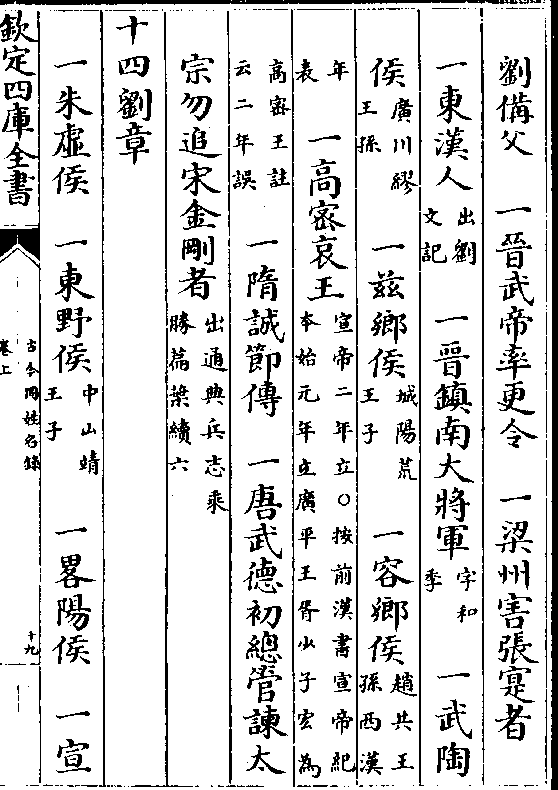 劉備父　一晉武帝率更令　一梁州害張寔者
一東漢人出劉文記　一晉鎮南大將軍字和季　一武陶
侯廣川繆王孫　一兹鄉侯城陽荒王子　一容鄉侯趙共王孫西漢
年表　一高密哀王宣帝二年立○按前漢書宣帝紀本始元年立廣平王胥少子宏為
高密王註云二年誤　一隋誠節傳　一唐武德初總管諫太
宗勿追宋金剛者出通典兵志乘勝篇槩續六
十四劉章
一朱虛侯　一東野侯中山靖王子　一畧陽侯　一宣
欽定四庫全書
古今同姓名錄
卷上
十九